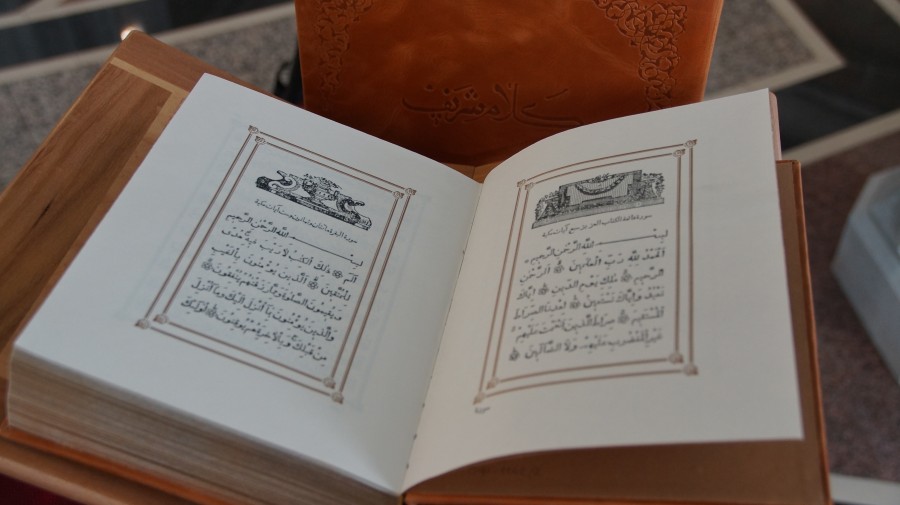 كلام شريف
سورة فاتحة الكتاب سبع آيات مكية
بِسْمِ اللّٰهِ الرَّحْمٰنِ الرَّحِيمِ
اَلْحَمْدُ لِلّٰهِ رَبِّ الْعَالَمِينَ ۞ اَلرَّحْمٰنِ
الرَّحِيمِ ۞ مٰلِكِ يَوْمِ الدِّينِ ۞ اِيَّاكَ
نَعْبُدُ وَاِيَّاكَ نَسْتَعِينُ ۞ اِهْدِنَا الصِّرَاطَ
الْمُسْتَقِيمَ ۞ صِرَاطَ الَّذِينَ اَنْعَمْتَ عَلَيْهِمْ
غَيْرِ الْمَغْضُوبِ عَلَيْهِمْ وَلَا الضَّالِّينَ ۞
سورة
سورة البقرة مائتان وثمانون وست آيات
بِسْمِ اللّٰهِ الرَّحْمٰنِ الرَّحِيمِ
الٓمٓ ۞ ذٰلِكَ الْكِتٰبُ لَا رَيْبَ فِيهِ هُدًى
لِلْمُتَّقِينَ ۞ اَلَّذِينَ يُؤْمِنُونَ بِالْغَيْبِ
وَيُقِيمُونَ الصَّلٰوةَ وَمِمَّا رَزَقْنَاهُمْ يُنْفِقُونَ ۞
وَالَّذِينَ يُؤْمِنُونَ بِمَا اُنْزِلَ اِلَيْكَ وَمَا اُنْزِلَ
مِنْ قَبْلِكَ وَبِالْاٰخِرَةِ هُمْ يُوقِنُونَ ۞ اُولٰئِكَ